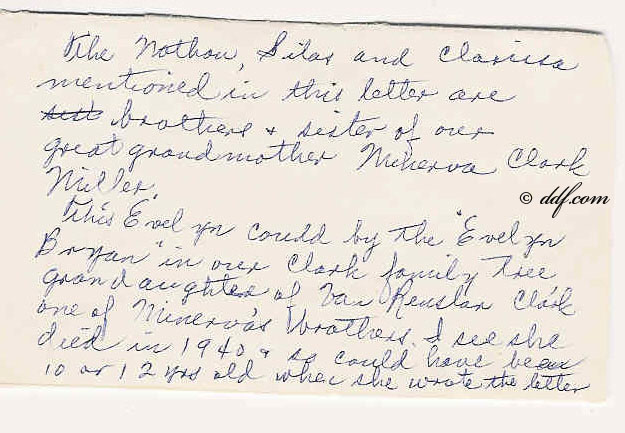 The Nothan, Silas and Clarissa
mentioned in this letter are
sist brothers & sister of our
great grandmother Minerva Clark
Miller.
© ddf.com
This Evelyn could by the "Evelyn
Bryan" in our Clark family tree
grandaughter of Van Renslar Clark
one of Minerva's brothers. I see she
died in 1940 & so could have been
10 or 12 yrs old when she wrote the letter